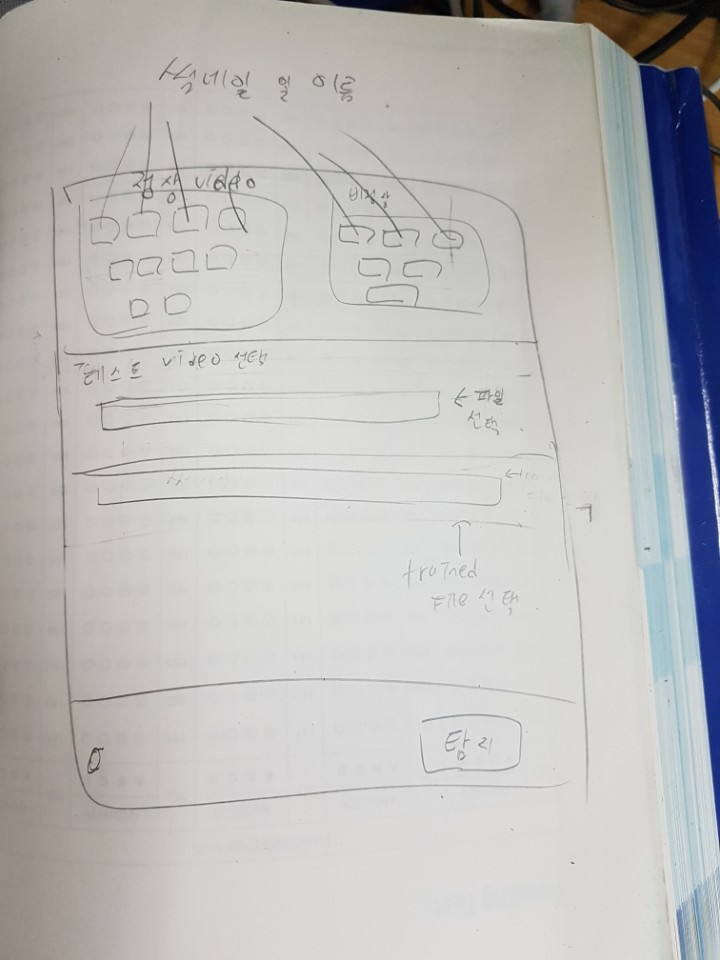 썸네일 및 이름
정상 video
비정상
테스트 video 선택
← 파일
선택
trained
File 선택
탐지